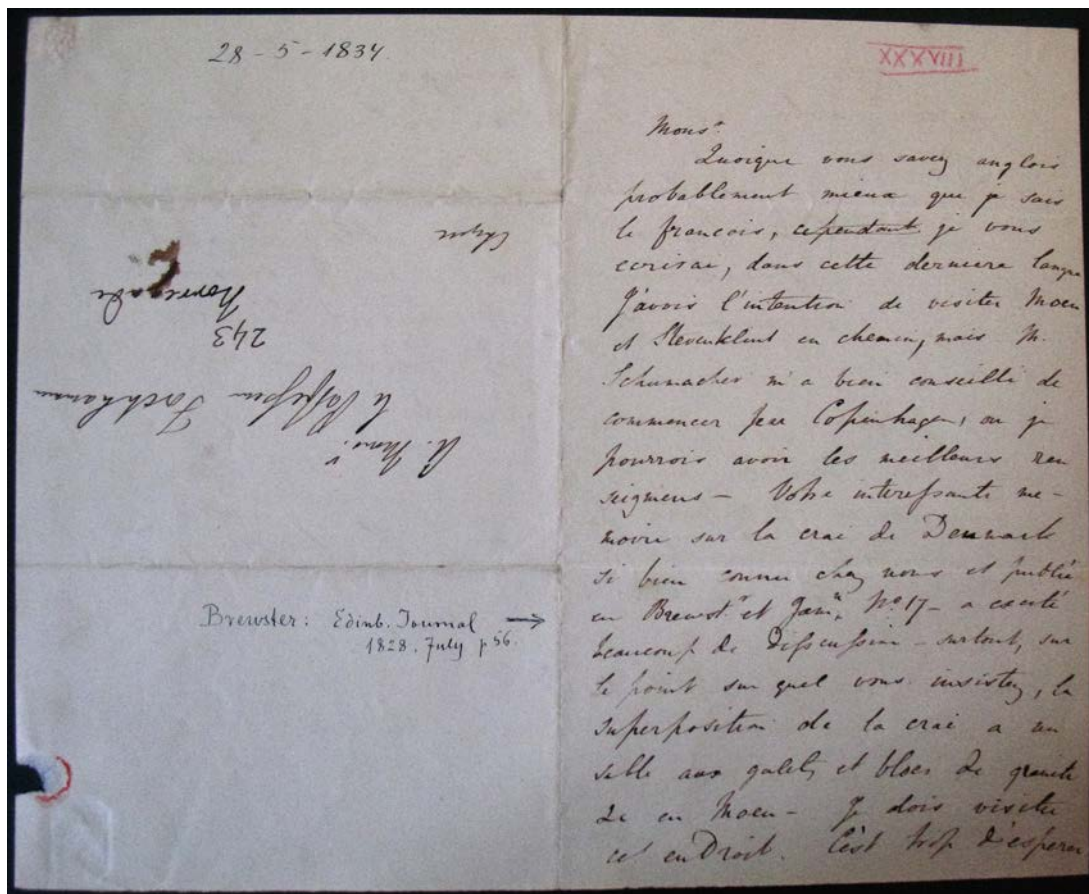 28 - 5 - 1834
Norregade
243
A Mons.r
le Professeur Forchhammer
Brewster: Edinb. Journal →
1828. July p 56.
XXXVIII
Mons.r
Quoique vous savez anglois
probablement mieux que je sais
le francois, cependant je vous
ecrirai, dans cette derniere langue
J'avois l'intention de visiter Moen
et Stevenklint en chemin, mais M.
Schumacher m'a bien conseillé de
commencer par Copenhagen, ou je
pourrois avoir les meilleurs ren
seignens - Votre interessante me-
moire sur la crai de Denmark
si bien connu chez nous et publié
en Brewst.r et Jam.n, No 17 - a excité
beaucoup de discussion - surtout, sur
le point sur quel vous insistez, la
superposition de la crai a un
sable aux galets et blocs de granite
&c en Moen - Je dois visiter
cet enDroit. C'est trop d'esperer